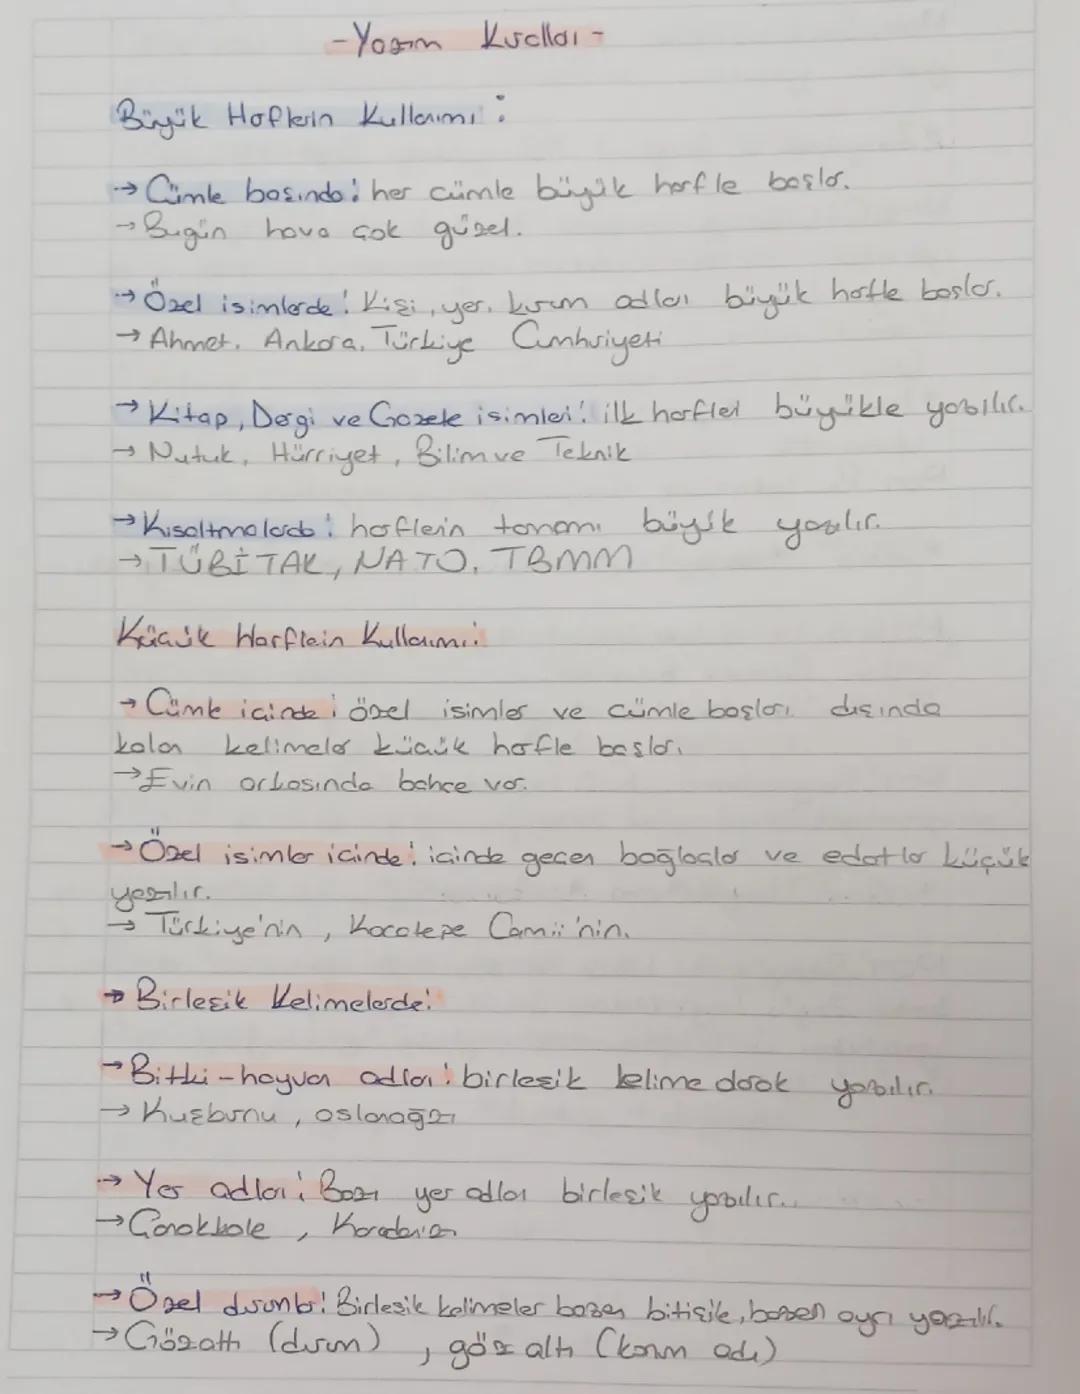 - Yazım Kuralları -
Büyük Harflerin Kullanımı :
→ Cümle başında: her cümle büyük harfle başlar.
→ Bugün hava çok güzel.
→ Özel isimlerde: Kişi, yer, kurum adları büyük harfle başlar.
→ Ahmet, Ankara, Türkiye Cumhuriyeti
→ Kitap, Dergi ve Gazete isimleri: ilk harfleri büyükle yazılır.
→ Nutuk, Hürriyet, Bilim ve Teknik
→ Kısaltmalarda: harflerin tamamı büyük yazılır.
→ TÜBİTAK, NATO, TBMM
Küçük Harflerin Kullanımı:
→ Cümle içinde: özel isimler ve cümle başları dışında
kalan kelimeler küçük harfle başlar.
→ Evin arkasında bahçe var.
→ Özel isimler içinde: içinde geçen bağlaçlar ve edatlar küçük
yazılır.
→ Türkiye'nin, Kocatepe Camii'nin.
→ Birleşik Kelimelerde:
→ Bitki-hayvan adları: birleşik kelime olarak yazılır.
→ Kuşburnu, aslanağzı
→ Yer adları: Bazı yer adları birleşik yazılır.
→ Çanakkale, Karadeniz
→ Özel durumlar: Birleşik kelimeler bazen bitişik, bazen ayrı yazılır.
→ Gözaltı (durum), göz altı (konum adı)